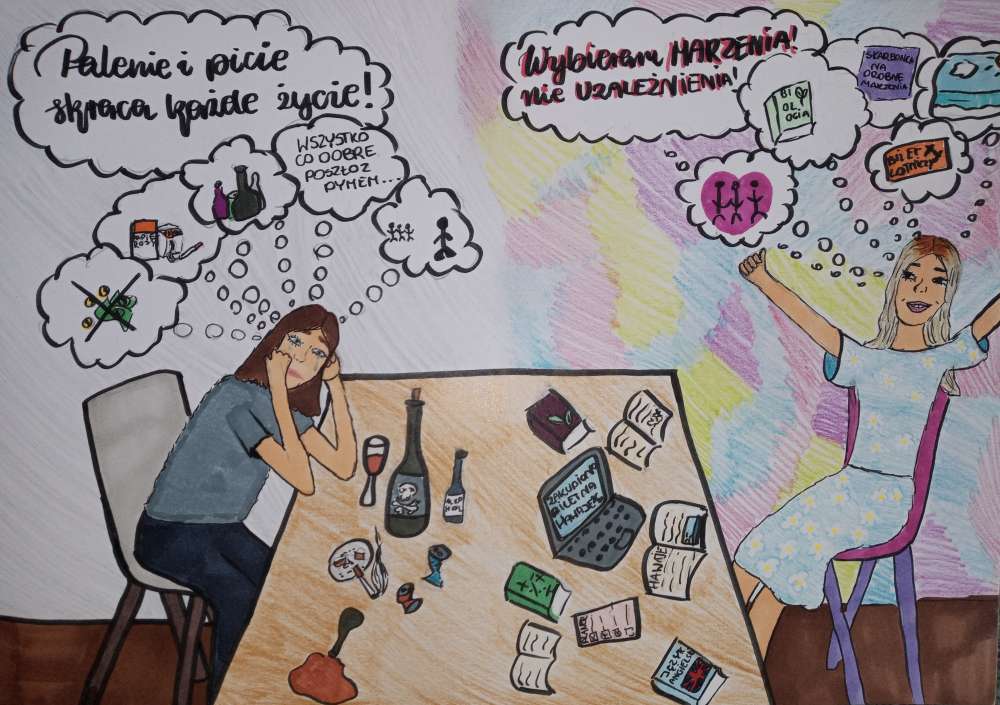 Palenie i picie
skraca każde życie!
WSZYSTKO
CO DOBRE
POSZŁO Z
DYMEM...
Wybieram MARZENIA!
nie UZALEŻNIENIA!
BI
OL
OGIA
SKARBONKA
NA
DROBNE
MARZENIA
BILET
LOTNICZY
ZAKUPIONO
BILET NA
HAWAJE
HAWAJE
JĘZYK
ANGIELSKI